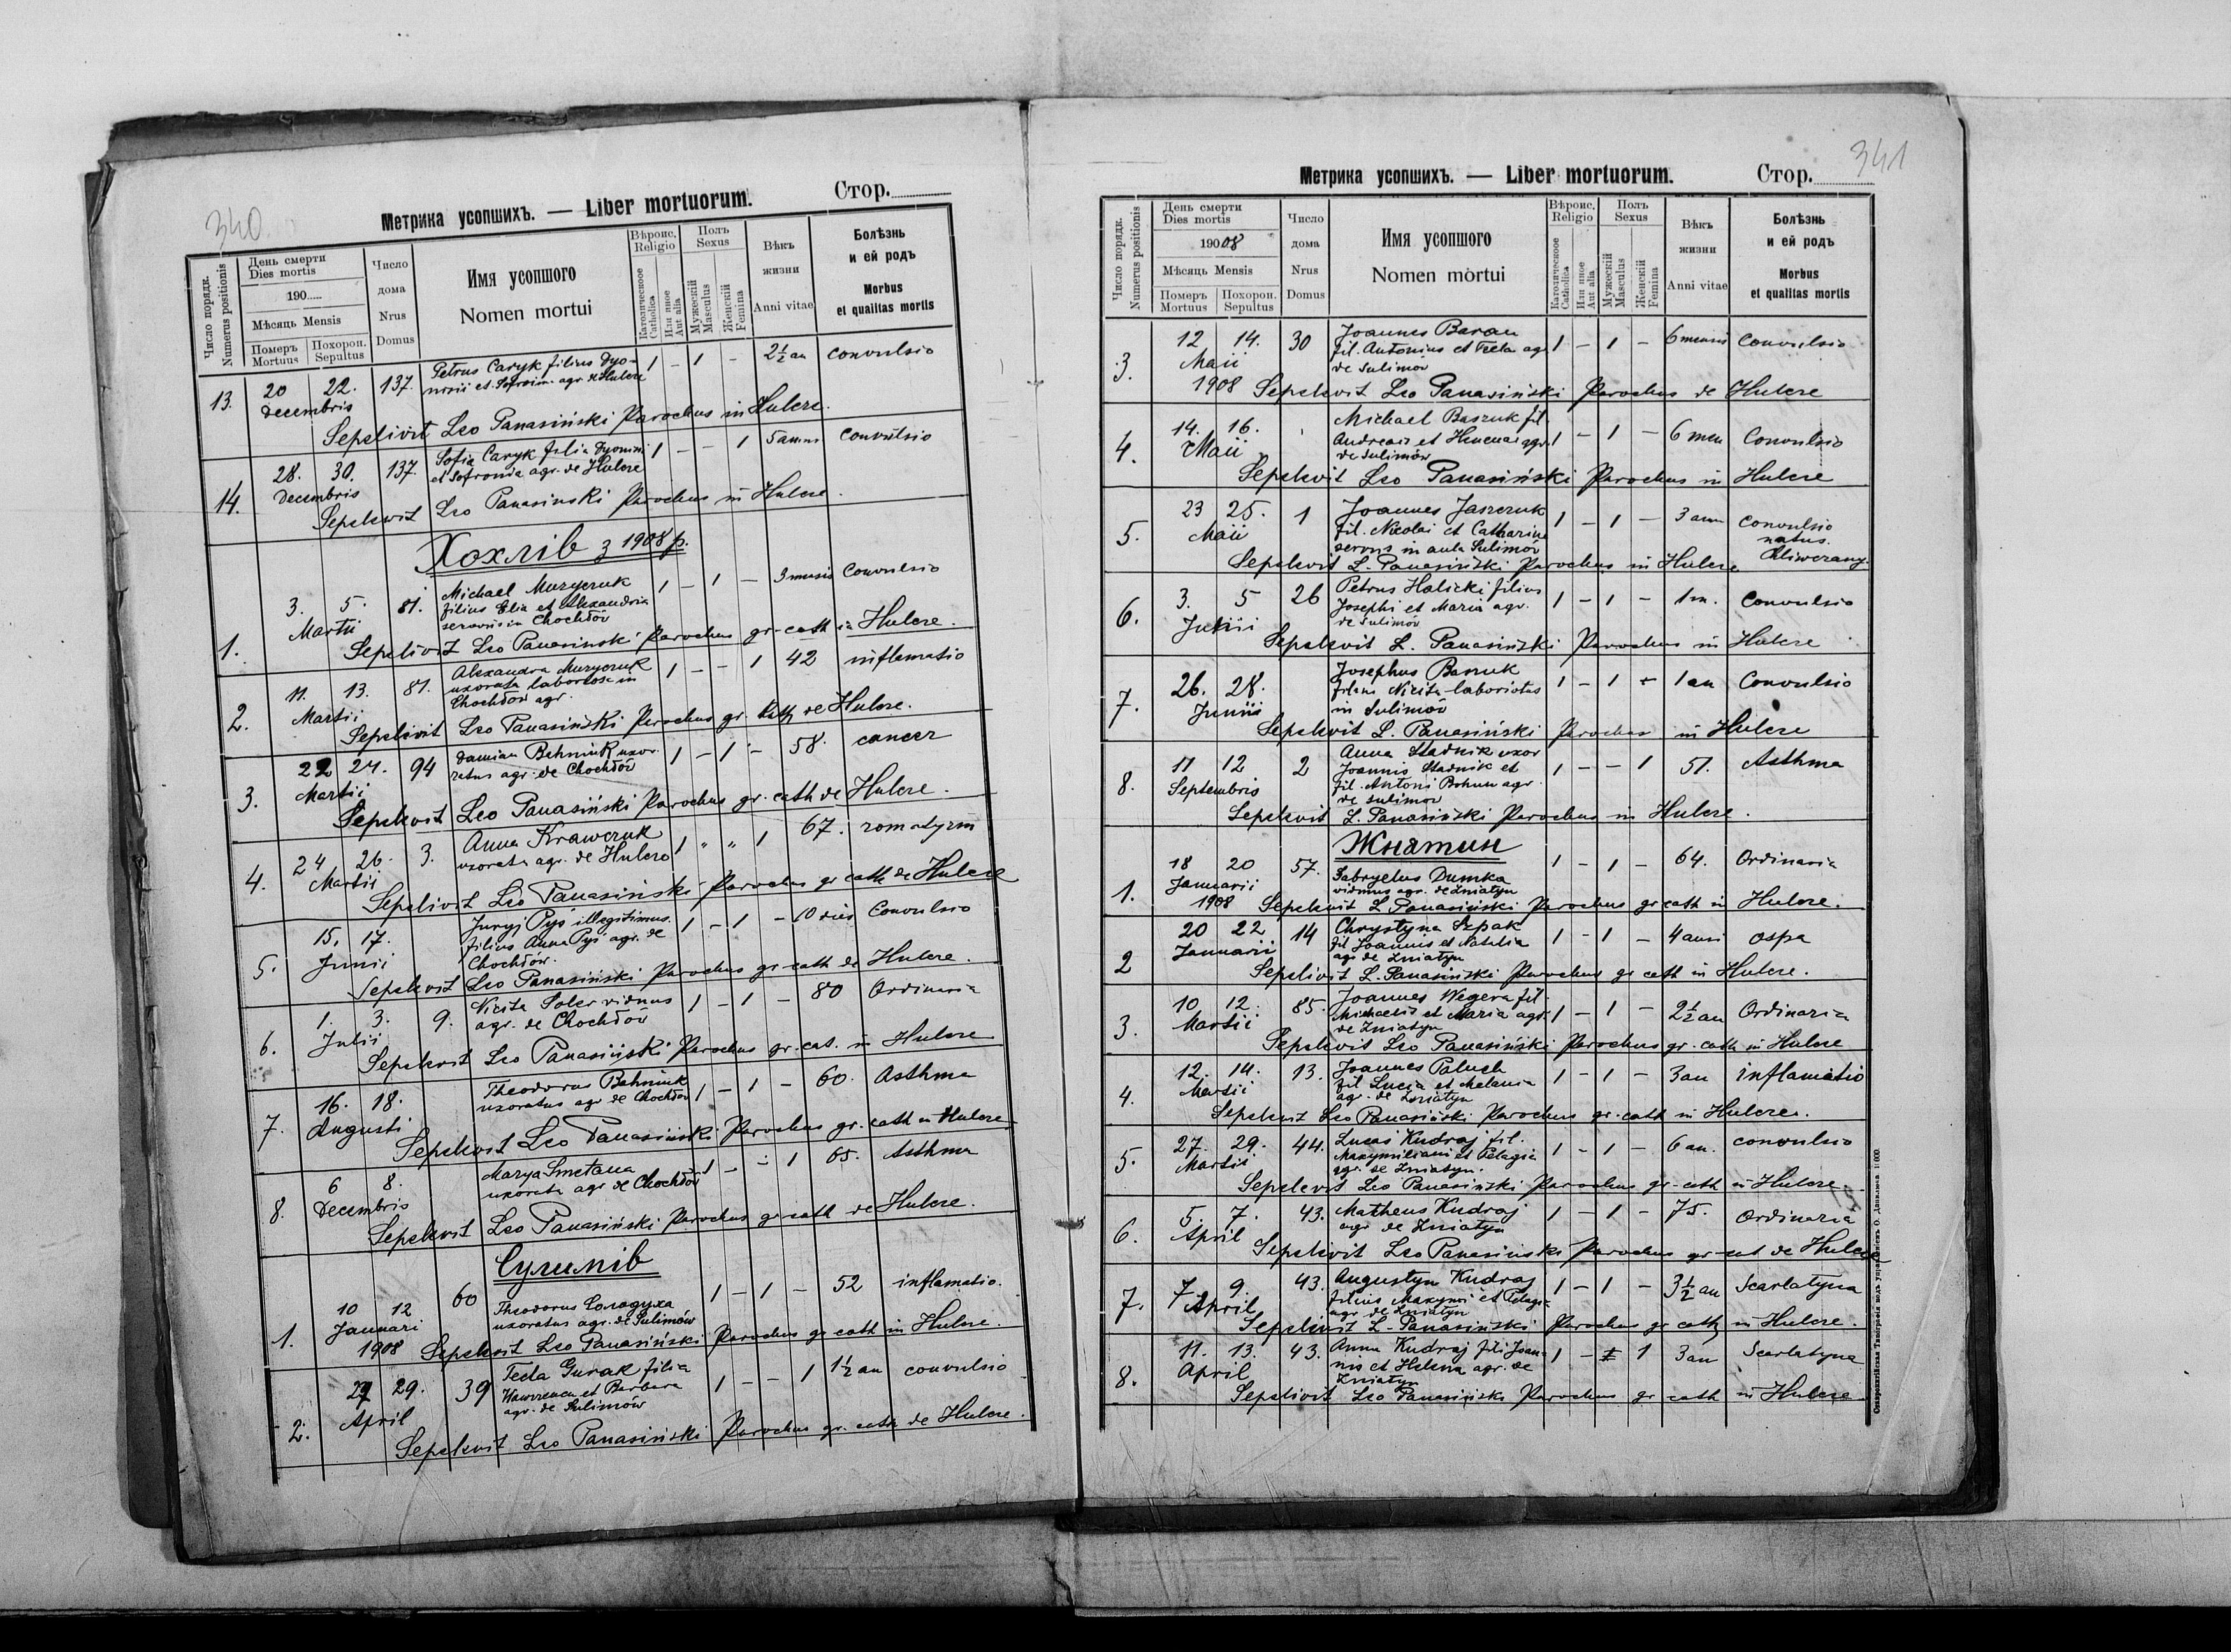 340
Метрика усопшихъ. — Liber mortuorum.
Стор.
Число порядк.
Numerus positionis
День смерти
Dies mortis
190
Мѣсяць Mensis
Померъ
Mortuus
Похорон.
Sepultus
Число
дома
Nrus
Domus
Имя усопшого
Nomen mortui
Вѣроис.
Religio
Католическоое
Catholica
Или иное
Aut alia
Полъ
Sexus
Мужескій
Masculus
Женскій
Femina
Вѣкъ
жизни
Anni vitae
Болѣзнь
и ей родъ
Morbus
et qualitas mortis
13. 20 22. Decembris 137. Petrus Caryk filius Dyo-
nisii et agr Hulcze 1 - 1 - 2½ an convulsio
Sepelivit Leo Panasiński Parochus in Hulcze.
14. 28. 30. Decembris 137. Sofia Caryk filia Dyonisii
et Sofronia agr. de Hulcze 1 - - 1 5 annos convulsio
Sepelivit Leo Panasinski Parochus in Hulcze.
Хохлів з 1908 р.
1. 3. 5. Martii 81. Michael Muzyczuk
filius Elia et Alexandria
servus in Chochłów 1 - 1 - 3 mensis convulsio
Sepelivit Leo Panasinski Parochus gr-cath in Hulcze.
2. 11. 13. Martii 81. Alexandra Muzyczuk
uxorata laboriosa in
Chochłów agr. 1 - - 1 42 inflamatio
Sepelivit Leo Panasiński Parochus gr. Kath de Hulcze.
3. 22 24. Martii 94 Damian Behniuk uxor
ratus agr. de Chochłów 1 - 1 - 58. cancer
Sepelivit Leo Panasiński Parochus gr. cath de Hulcze.
4. 24 26. Martii 3. Anna Krawczuk
uxorata agr. de Hulcze 1 " " 1 67. romatyzm
Sepelivit Leo Panasiński Parochus gr cath de Hulcze
5. 15. 17. Junii Juryj Pyś illegitimus.
filius Anna Pyś agr. de
Chochłów. 1 - 1 - 10 dies Convulsio
Sepelivit Leo Panasiński Parochus gr-cath de Hulcze.
6. 1. 3. Julii 9. Nicita Soler viduus
agr. de Chochłów 1 - 1 - 80 Ordinaria
Sepelivit Leo Panasiński Parochus gr. cat. in Hulcze
7. 16. 18. Augusti Theodorus Behniuk
uxoratus agr de Chochłów 1 - 1 - 60. Asthma
Sepelivit Leo Panasiński Parochus gr. cath in Hulcze
8. 6 8. Decembris Marya Smetana
uxorata agr de Chochłów 1 - - 1 65. Asthma
Sepelivit Leo Panasiński Parochus gr cath de Hulcze.
Сулимів
1. 10 12 Januari 1908 60 Theodorus
uxoratus agr. de Sulimów 1 - 1 - 52 inflamatio.
Sepelivit Leo Panasiński Parochus gr cath in Hulcze.
2. 27 29. April 39 Tecla Gurak filia
et Barbara
agr. de Sulimów 1 - - 1 1½ an convulsio
Sepelivit Leo Panasiński Parochus gr. cath de Hulcze.
341
Метрика усопшихъ. — Liber mortuorum.
Стор.
Число порядк.
Numerus positionis
День смерти
Dies mortis
1908
Мѣсяць Mensis
Померъ
Mortuus
Похорон.
Sepultus
Число
дома
Nrus
Domus
Имя усопшого
Nomen mortui
Вѣроис.
Religio
Католическоое
Catholica
Или иное
Aut alia
Полъ
Sexus
Мужескій
Masculus
Женскій
Femina
Вѣкъ
жизни
Anni vitae
Болѣзнь
и ей родъ
Morbus
et qualitas mortis
3. 12 14. Maii 1908 30 Joannes Baran
fil. Antonius et Tecla agr
de Sulimów 1 - 1 - 6 mensis Convulsio
Sepelivit Leo Panasiński Parochus de Hulcze
4. 14. 16. Maii Michael Baszuk fil.
Andreas et agr.
de Sulimów 1 - 1 - 6 men Convulsio
Sepelivit Leo Panasiński Parochus in Hulcze
5. 23 25. Maii 1 Joannes Jaszczuk
fil. Nicolai et Catharina
servus in aula Sulimów 1 - 1 - 3 ann convulsio
natus.
Sepelivit L. Panasiński Parochus in Hulcze
6. 3. 5 Junii 26 Petrus Halicki filius
Josephi et Maria agr.
de Sulimów 1 - 1 - 1 m. Convulsio
Sepelivit L. Panasiński Parochus in Hulcze
7. 26. 28. Junii Josephus Baszuk
filius Nicita laboriotus
in Sulimów 1 - 1 - 1 an Convulsio
Sepelivit L. Panasiński Parochus in Hulcze
8. 11 12 Septembris 2 Anna Stadnik uxor
Joannis Stadnik et
fil. Antoni Bohun agr.
de Sulimow 1 - - 1 51. Asthma
Sepelivit L. Panasiński Parochus in Hulcze.
Жнятин
1. 18 20 Januarii 1908 57. Gabryelus Dumka
viduus agr. de Żniatyn 1 - 1 - 64. Ordinaria
Sepelivit L Panasiński Parochus gr cath in Hulcze.
2 20 22 Januarii 14 Chrystyna Szpak
fil Joannis et Natalia
agr de Żniatyn 1 - 1 - 4 anni ospa
Sepelivit L. Panasiński Parochus gr cath in Hulcze.
3. 10 12. Martii 85. Joannes Wegera fil.
Michaelis et Maria agr.
de Żniatyn 1 - 1 - 2½ an Ordinaria
Sepelivit Leo Panasiński Parochus gr. cath in Hulcze
4. 12. 14. Martii 13. Joannes Paluch
fil Lucia et Melania
agr. de Żniatyn 1 - 1 - 3 an inflamatio
Sepelivit Leo Panasiński Parochus gr. cath in Hulcze.
5. 27. 29. Martii 44. Lucas Kudraj fil.
Maxymiliani et Pelagia
agr. de Żniatyn. 1 - 1 - 6 an. convulsio
Sepelivit Leo Panasiński Parochus gr-cath in Hulcze
6. 5. 7. April 43. Matheus Kudraj
agr de Żniatyn 1 - 1 - 75. Ordinaria
Sepelivit Leo Panasiński Parochus gr-cat de Hulcze
7. 7 9. April 43. Augustyn Kudraj
filius Maxymi et Pelagia
agr de Żniatyn 1 - 1 - 3½ an Scarlatyna
Sepelivit L. Panasiński Parochus gr cath in Hulcze.
8. 11. 13. April 43. Anna Kudraj fili Joan-
nis et Helena agr. de
Żniatyn 1 - 1 3 an Scarlatyna
Sepelivit Leo Panasiński Parochus gr cath in Hulcze